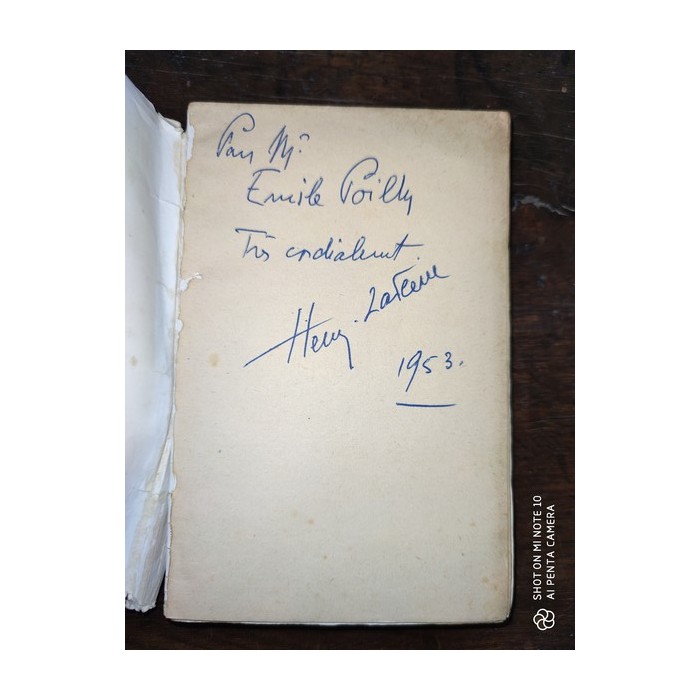 Pour Mr.
Emile Poilly
Très cordialement
Henry
1953.
SHOT ON MI NOTE 10
AI PENTA CAMERA